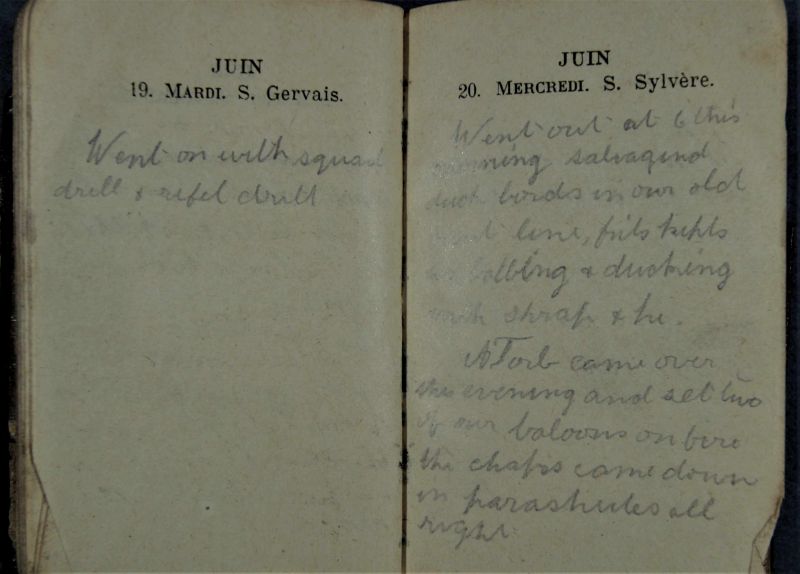 JUIN
19. MARDI. S. Gervais.
Went on with squad
drill & rifel drill
JUIN
20. MERCREDI. S. Sylvère.
Went out at 6 this
morning salvagend
duck bords in our old
line, frits kept
bobbing & ducking
with shrap & he.
A Torb came over
this evening and set two
of our baloons on fire
the chaps came down
in parashutes all
right